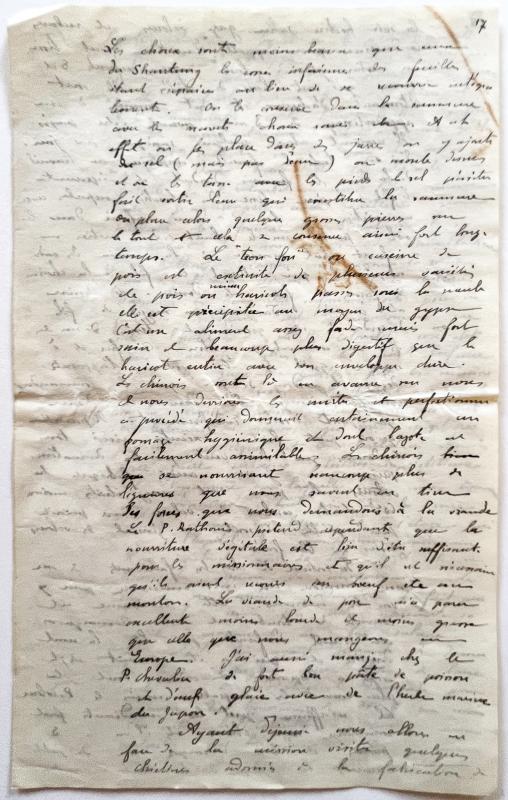 17
Les choux sont moins beaux que ceux
du Shantung les uns informes des feuilles
étant au lieu de se recouvrir
On le conserve dans la saumure
avec les navets choux raves etc A cet
effet on les place dans des jarres on y ajoute
du sel (mais pas d'eau) on monte dessus
et on les tasse avec les pieds le sel
fait sortir l'eau qui constitue la saumure
on place alors quelques grosses pierres sur
le tout et cela se conserve ainsi fort long-
temps. Le "teou fou" ou caseine de
pois est extraite de plusieurs variétés
de pois ou haricots passés sous la meule
elle est précipitée au moyen du gypse
C'est un aliment assez fade mais fort
sain et beaucoup plus digestif que le
haricot entier avec son enveloppe dure.
Les chinois sont là en avance sur nous
et nous devrions les imiter et perfectionner
ce procédé qui donnerait certainement un
fromage hygiénique et dont l'azote est
facilement assimilable. Les chinois
que se nourrissant beaucoup plus de
légumes que nous savent en tirer
les forces que nous demandons à la viande
Le P. prétend cependant que la
nourriture végétale est loin d'être suffisante
pour les missionnaires et qu'il est nécessaire
qu'ils aient recours au boeuf et au
mouton. La viande de porc est ici
excellente moins lourde et moins grasse
que celle que nous mangeons en
Europe. J'ai aussi mangé chez le
P. Chevalier de fort bon pâté de poisson
et d'oeufs glacé avec de l'herbe marine
du Japon.
Ayant dejeuné nous allons en
face de la mission visiter quelques
chrétiens adonnés à la fabrication de